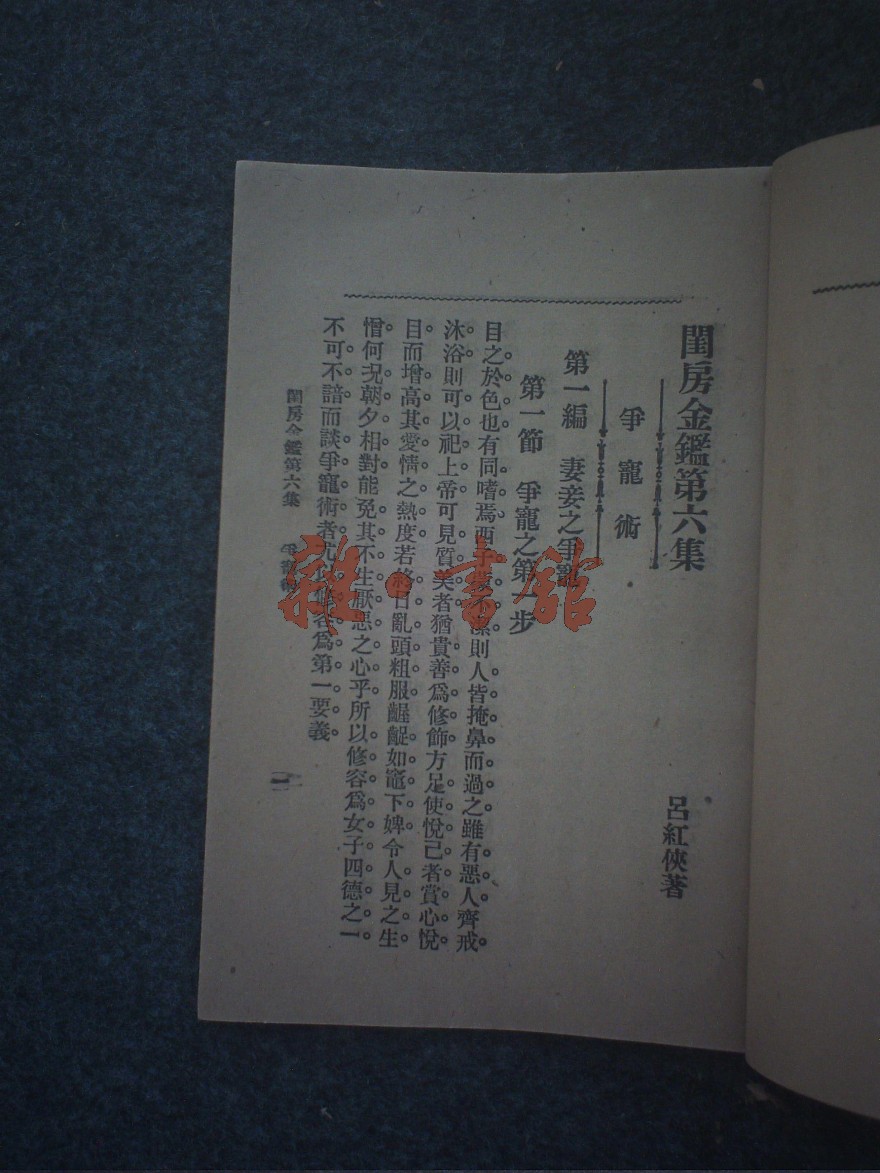 閨房金鑑第六集
爭寵術
呂紅俠著
第一編 妻妾之爭寵
第一節 爭寵之第一步
目之於色也有同嗜焉西子蒙不潔則人皆掩鼻而過之雖有惡人齊戒
沐浴則可以祀上帝可見質美者猶貴善爲修飾方足使悅己者賞心悅
目而增高其愛情之熱度若終日亂頭粗服齷齪如竈下婢令人見之生
憎何況朝夕相對能免其不生厭惡之心乎所以修容爲女子四德之一
不可不諳而談爭寵術者尤以修容爲第一要義
閨房金鑑第六集 爭寵術
一
雜·書館